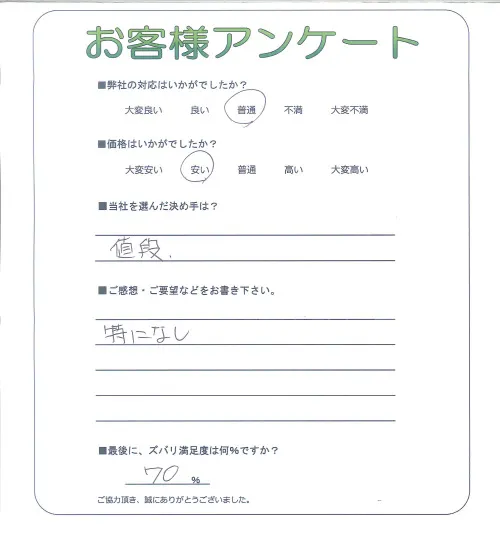 お客様アンケート
■弊社の対応はいかがでしたか？
大変良い 良い 普通 不満 大変不満
■価格はいかがでしたか？
大変安い 安い 普通 高い 大変高い
■当社を選んだ決め手は？
値段.
■ご感想・ご要望などをお書き下さい。
特になし
■最後に、ズバリ満足度は何%ですか？
70 %
ご協力頂き、誠にありがとうございました。